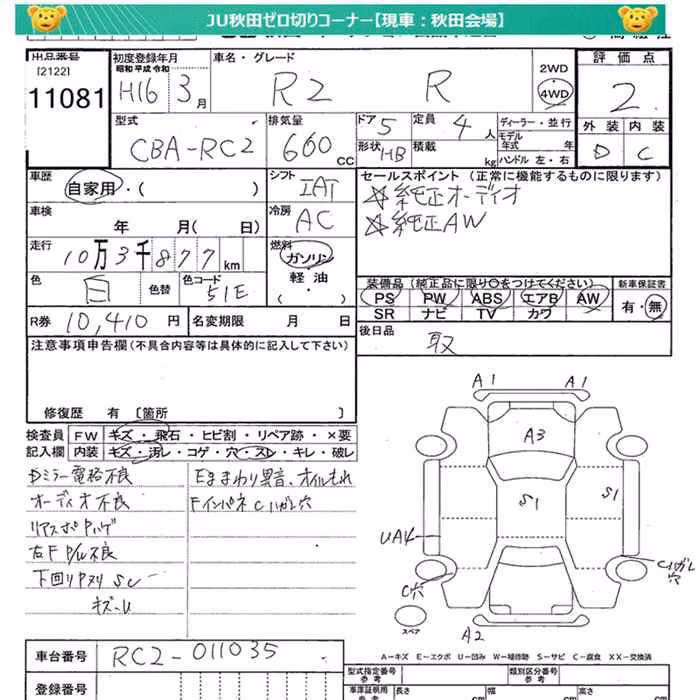 JU秋田ゼロ切りコーナー【現車：秋田会場】
出品番号
[2122]
11081
初度登録年月
昭和 平成 令和
H16 3月
車名・グレード
R2 R
2WD
・
4WD
評価点
2
外装 内装
D C
型式
CBA-RC2
排気量
660 CC
ドア 5
定員 4人
形状 HB
積載 kg
ディーラー・並行
モデル
年式 年
ハンドル 左・右
車歴
自家用・( )
シフト
IAT
車検
年 月( 日)
冷房
AC
走行
10万3千877km
燃料
ガソリン
軽・油
・( )
色
白
色替
色コード
51E
R券 10,410円
名変期限 月 日
セールスポイント(正常に機能するものに限ります)
☆純正オーディオ
☆純正AW
装備品(純正品に限り○をつけてください)
PS PW ABS エアB AW
SR ナビ TV カワ
新車保証書
有・無
後日品
取
注意事項申告欄(不具合内容等は具体的に記入して下さい)
修復歴 有 〔箇所 〕
検査員
記入欄
FW キズ・飛石・ヒビ割・リペア跡・×要
内装 キズ・汚レ・コゲ・穴・スレ・キレ・破レ
Dミラー電格不良
オーディオ不良
リアスポPハゲ
右F P/W不良
下回りPヌリ SU
キズ〜U
Eまわり異音、オイルもれ
Fインパネ Cハガレ穴
A1 A1
A3
S1
S1
UA4
C穴
Cハガレ
穴
A2
スペア
A－キズ E－エクボ U－凹み W－補修跡 S－サビ C－腐食 XX－交換済
車台番号
RC2-011035
登録番号
型式指定番号
参考
類別区分番号
参考
車庫証明用
参考
長さ cm
幅 cm
高さ cm